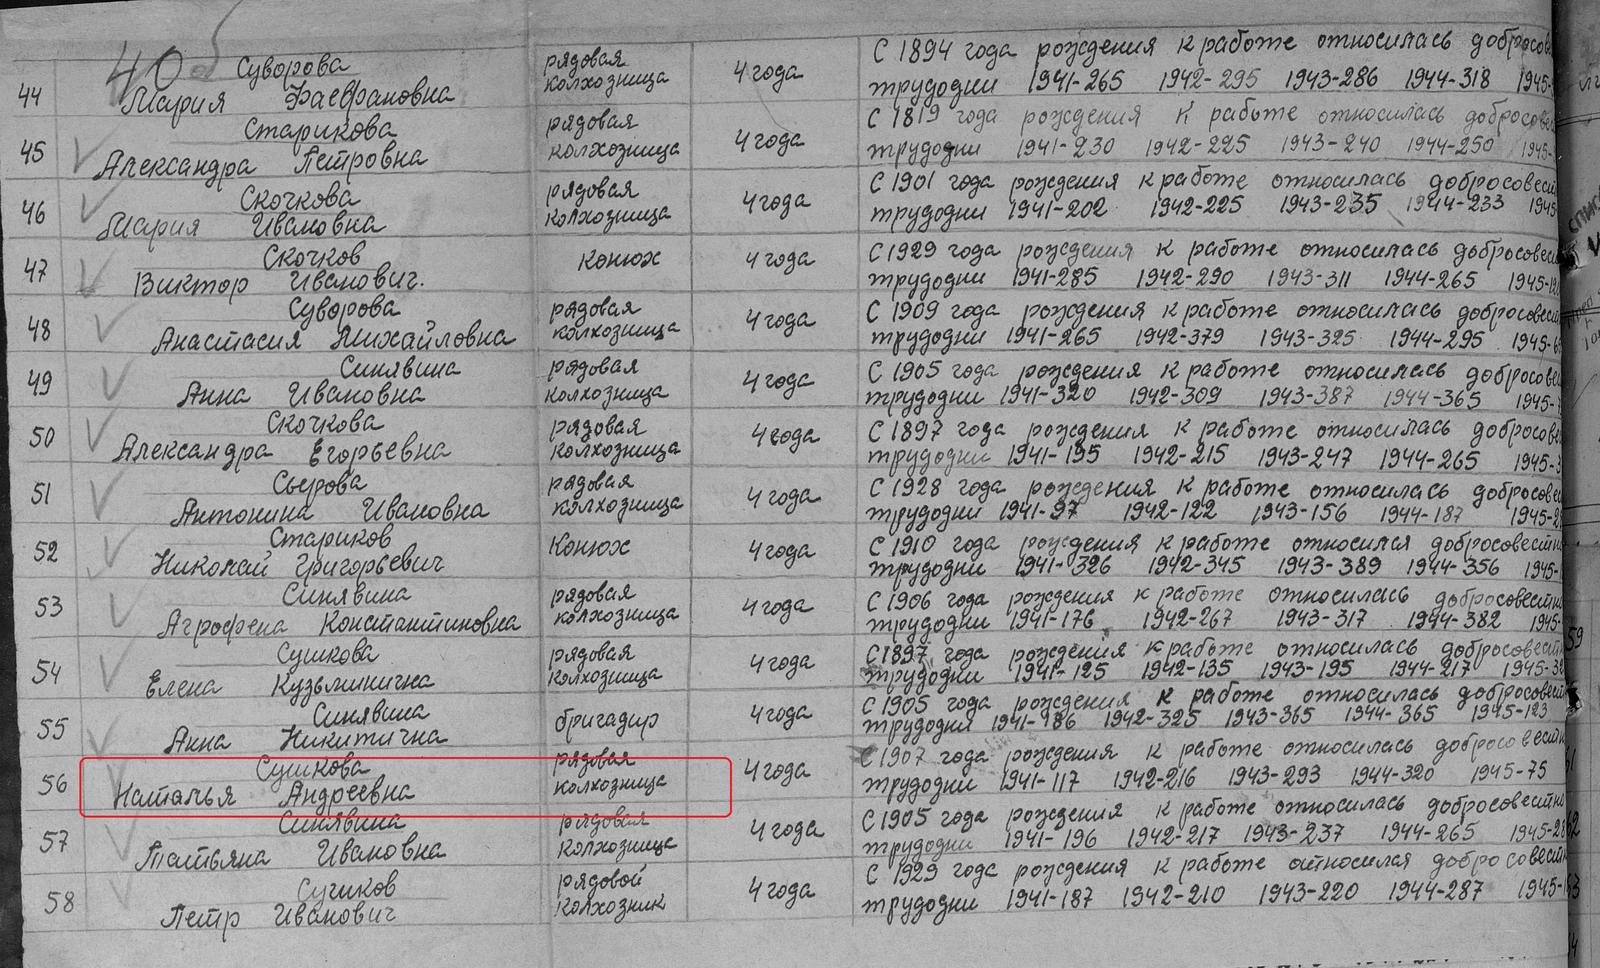 40
44 Суворова рядовая 4 года С 1894 года рождения к работе относилась добросов
Мария колхозница трудодни 1941-265 1942-295 1943-286 1944-318 1945-
45 Старикова рядовая 4 года С 1819 года рождения к работе относилась добросове
Александра Петровна колхозница трудодни 1941-230 1942-225 1943-240 1944-250 1945-
46 Скочкова рядовая 4 года С 1901 года рождения к работе относилась добросовест
Мария Ивановна колхозница трудодни 1941-202 1942-225 1943-235 1944-233 1945-
47 Скочков конюх 4 года С 1929 года рождения к работе относилась добросове
Виктор Иванович. трудодни 1941-285 1942-290 1943-311 1944-265 1945-
48 Суворова рядовая 4 года С 1909 года рождения к работе относилась добросове
Анастасия Михайловна колхозница трудодни 1941-265 1942-379 1943-325 1944-295 1945-
49 Синявина рядовая 4 года С 1905 года рождения к работе относилась добросове
Анна Ивановна колхозница трудодни 1941-320 1942-309 1943-387 1944-365 1945-
50 Скочкова рядовая 4 года С 1897 года рождения к работе относилась добросове
Александра Егорьевна колхозница трудодни 1941-195 1942-215 1943-247 1944-265 1945-
51 Сьерова рядовая 4 года С 1928 года рождения к работе относилась добросове
Антонина Ивановна колхозница трудодни 1941-97 1942-122 1943-156 1944-187 1945-
52 Стариков Конюх 4 года С 1910 года рождения к работе относился добросовестн
Николай Григорьевич трудодни 1941-326 1942-345 1943-389 1944-356 1945-
53 Синявина рядовая 4 года С 1906 года рождения к работе относилась добросовестн
Агрофена Константиновна колхозница трудодни 1941-176 1942-267 1943-317 1944-382 1945-
54 Сушкова рядовая 4 года С 1897 года рождения к работе относилась добросовестн
Елена Кузьминична колхозница трудодни 1941-125 1942-135 1943-195 1944-217 1945-32
55 Синявина бригадир 4 года С 1905 года рождения к работе относилась добросовест
Анна Никитична трудодни 1941-186 1942-325 1943-365 1944-365 1945-123
56 Сушкова рядовая 4 года С 1907 года рождения к работе относилась добросовестн
Наталья Андреевна колхозница трудодни 1941-117 1942-216 1943-293 1944-320 1945-75
57 Синявина рядовая 4 года С 1905 года рождения к работе относилась добросовестн
Татьяна Ивановна колхозница трудодни 1941-196 1942-217 1943-237 1944-265 1945-28
58 Сушков рядовой 4 года С 1929 года рождения к работе относился добросовестн
Петр Иванович колхозник трудодни 1941-187 1942-210 1943-220 1944-287 1945-
59